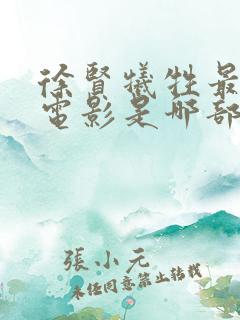 徐賢犧牲最
電影是哪部
張小元
未經同意禁止轉載